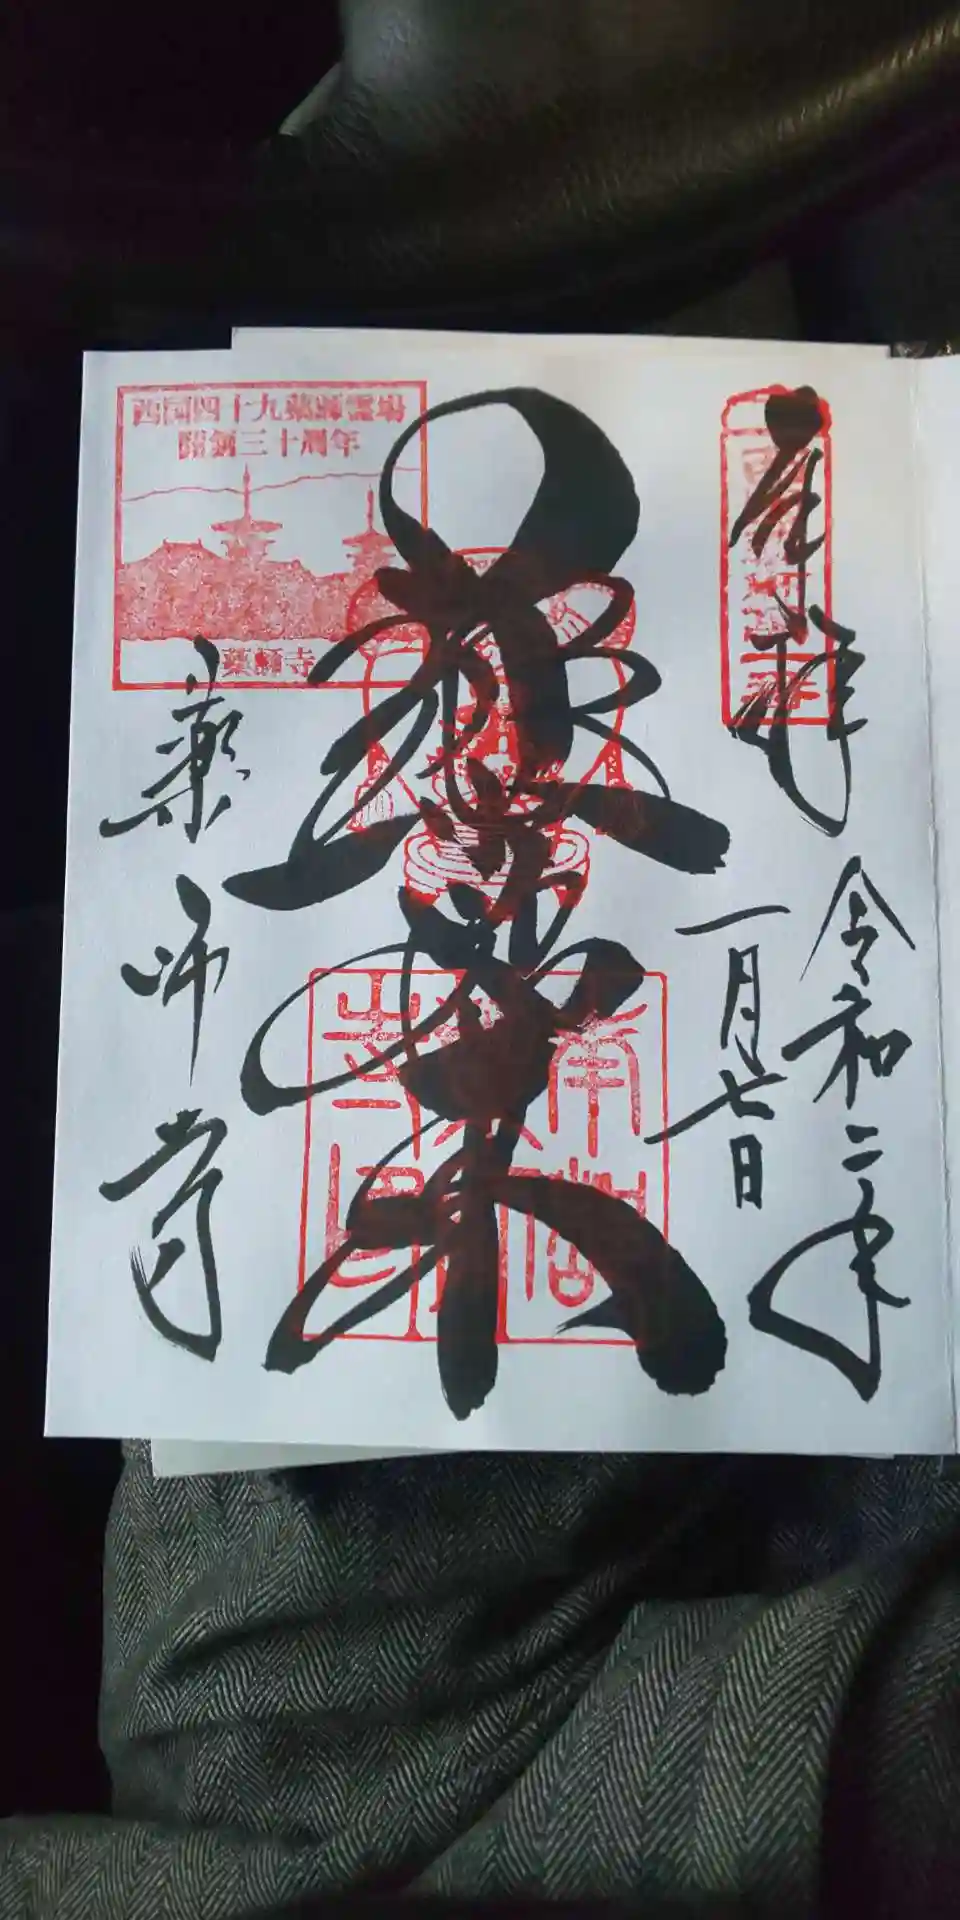 奉拝
令和二年
一月七日
薬師如来
薬師寺
西国四十九薬師霊場
開創三十周年
薬師寺